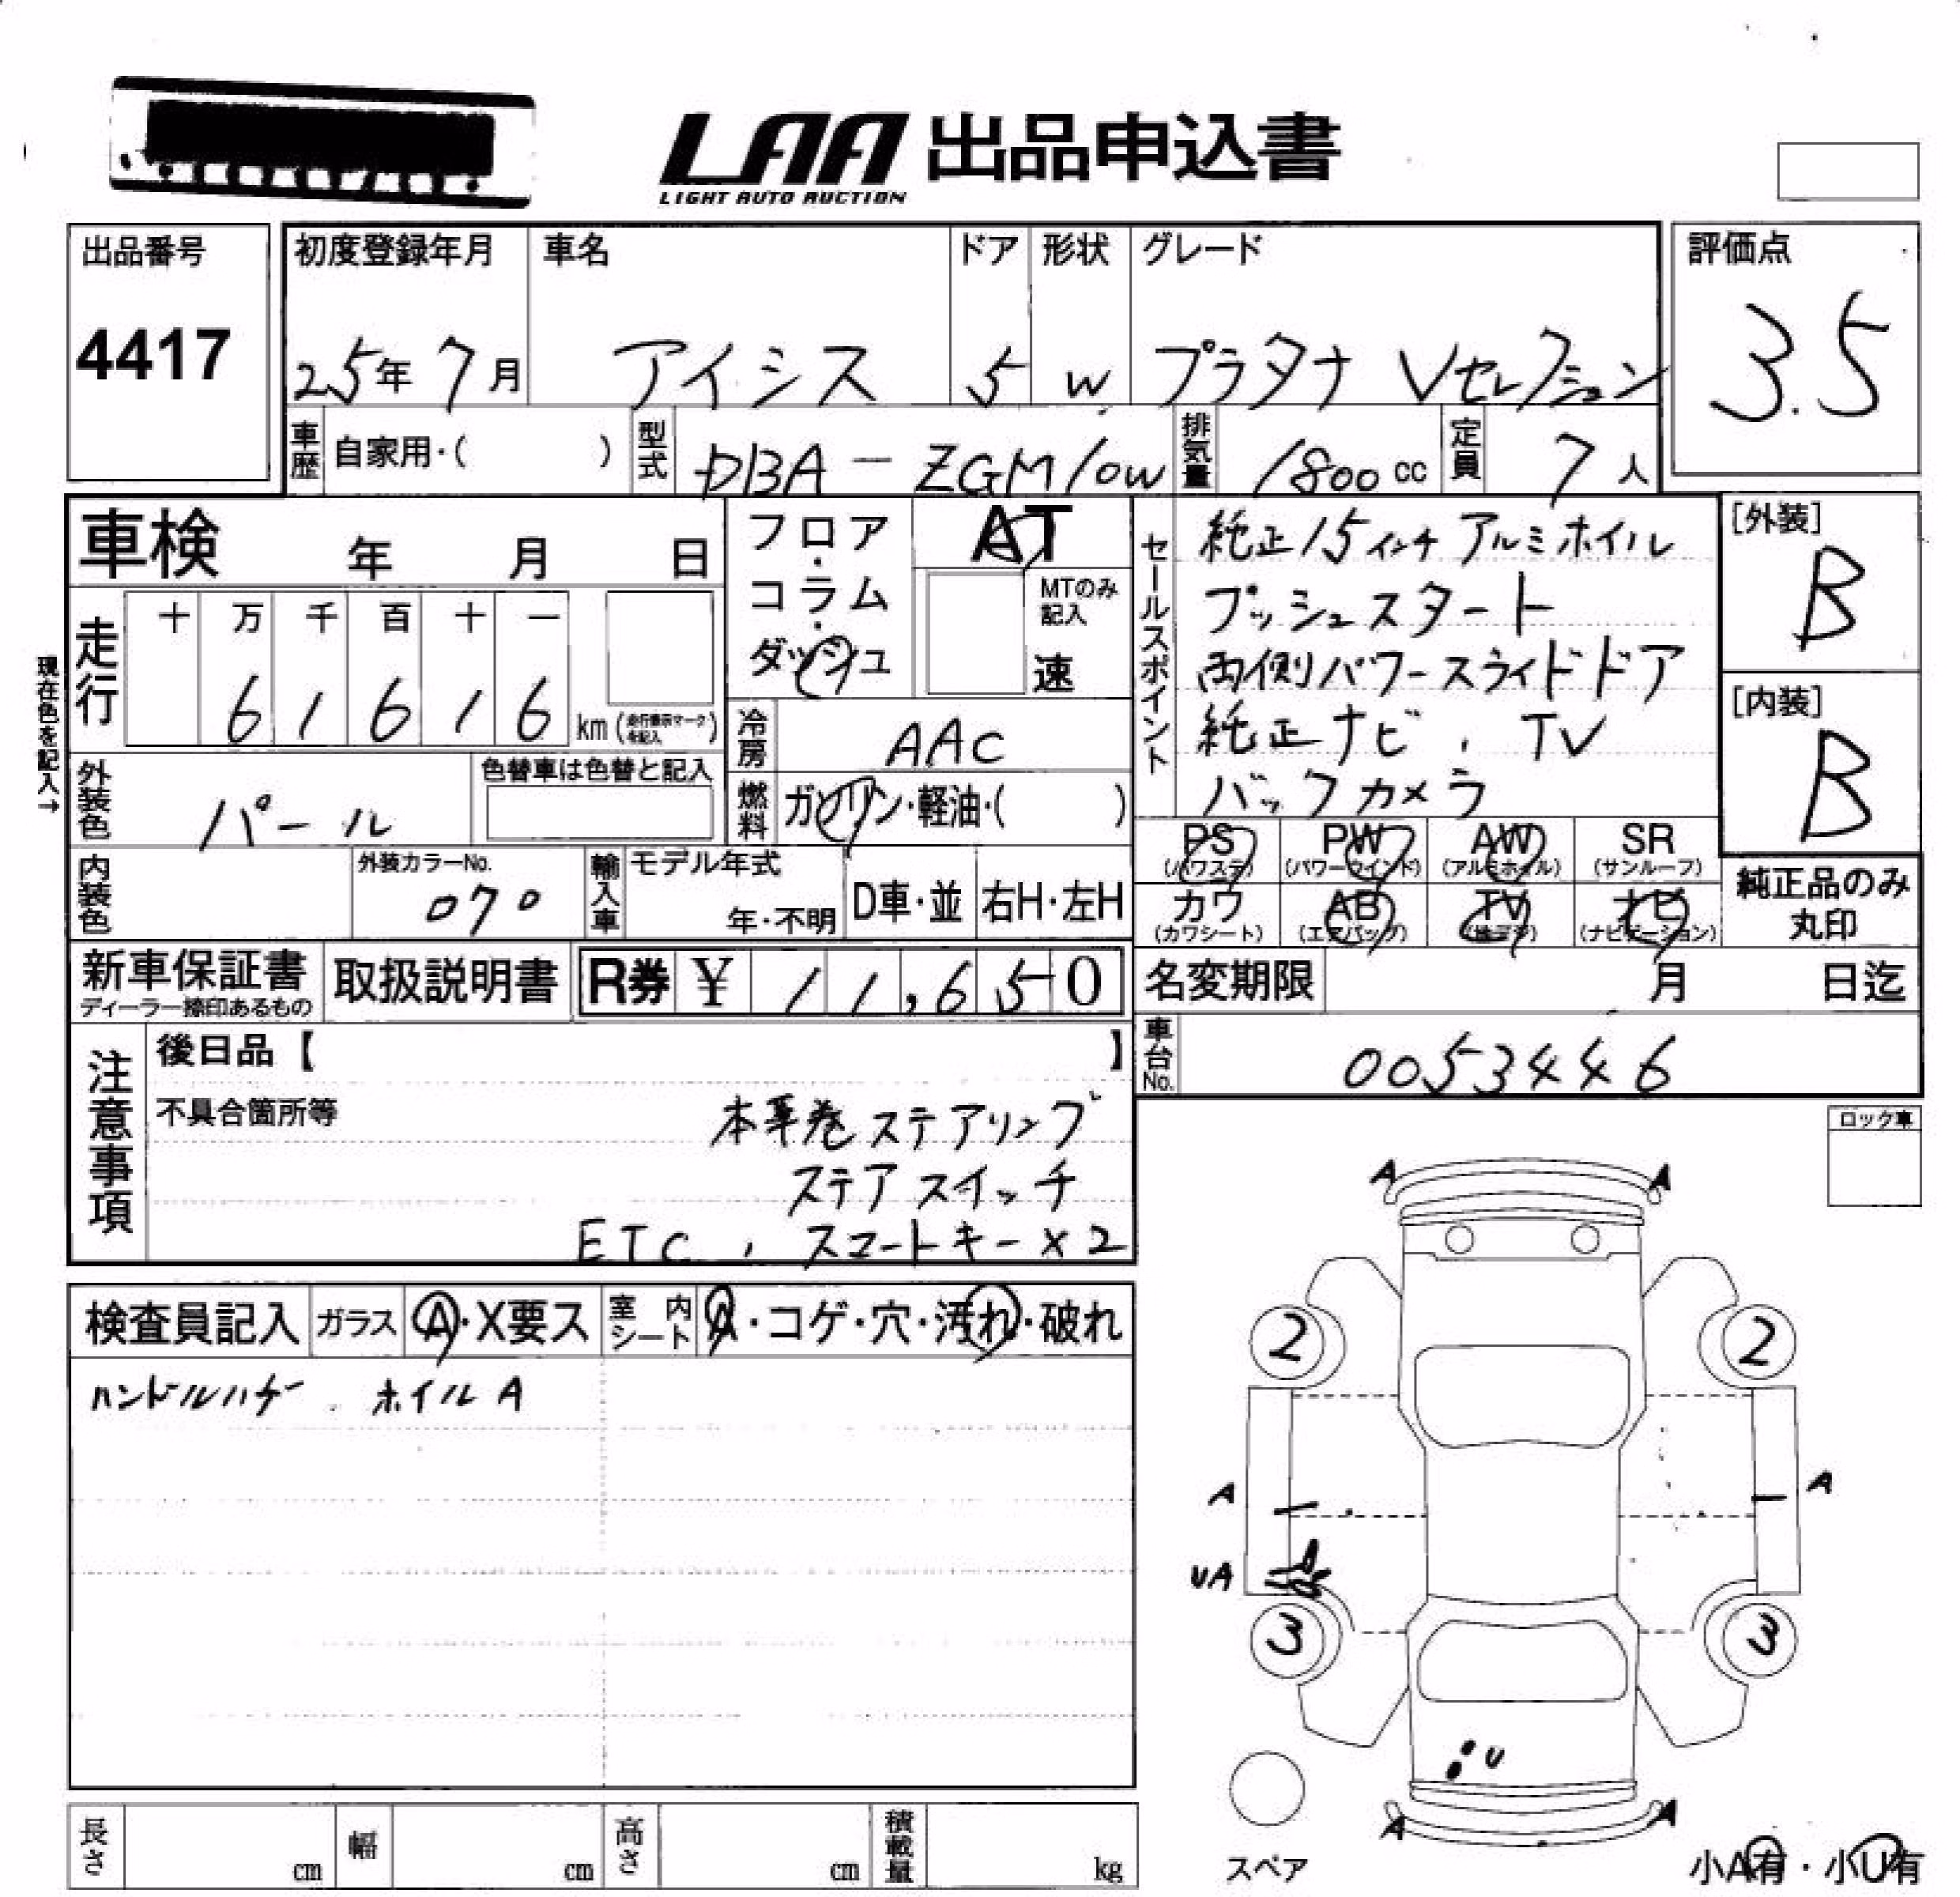 LAA 出品申込書
LIGHT AUTO AUCTION
出品番号
4417
初度登録年月 車名 ドア 形状 グレード
25年 7月 アイシス 5 W プラタナ Vセレクション
評価点
3.5
車歴 自家用・( ) 型式 DBA-ZGM10W 排気量 1800cc 定員 7人
車検 年 月 日
フロア・コラム・ダッシュ
AT
MTのみ記入
速
セールスポイント
純正15インチアルミホイル
プッシュスタート
両側パワースライドドア
純正ナビ、TV
バックカメラ
[外装]
B
[内装]
B
現在色を記入→
走行
十 万 千 百 十 一
6 1 6 1 6 km (走行表示マークを記入)
冷房 AAC
外装色 パール 色替車は色替と記入
燃料 ガソリン・軽油・( )
PS (パワステ) PW (パワーウインド) AW (アルミホイル) SR (サンルーフ)
カワ (カワシート) AB (エアバッグ) TV (地デジ) ナビ (ナビゲーション)
純正品のみ
丸印
内装色 外装カラーNo. 070 輸入車 モデル年式 年・不明 D車・並 右H・左H
新車保証書
ディーラー捺印あるもの
取扱説明書 R券 ¥ 11,650
名変期限 月 日迄
車台No. 0053446
注意事項
後日品【 】
不具合箇所等
本革巻ステアリング
ステアスイッチ
ETC、スマートキー×2
ロック車
検査員記入 ガラス A・X要ス 室内シート A・コゲ・穴・汚れ・破れ
ハンドルハゲ . ホイルA
A A
2 2
A A
UA
3 3
U
A A
スペア
小A有・小U有
長さ cm 幅 cm 高さ cm 積載量 kg